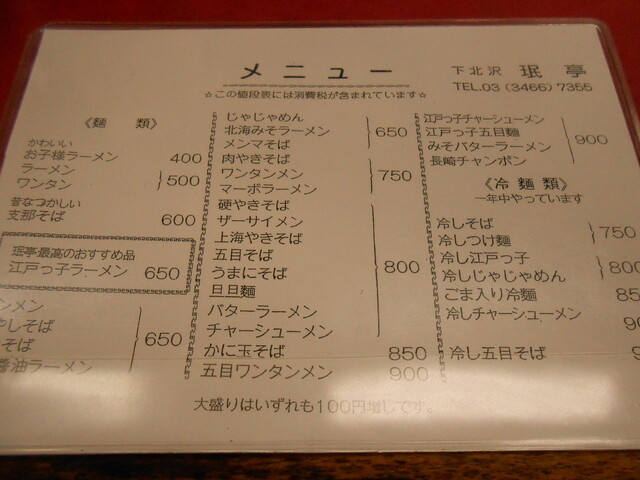 メニュー
下北沢 珉亭
TEL.03 (3466) 7355
☆この値段表には消費税が含まれています☆
《麺 類》
かわいい
お子様ラーメン 400
ラーメン
ワンタン
500
昔なつかしい
支那そば 600
珉亭最高のおすすめ品
江戸っ子ラーメン 650
ンメン
やしそば
そば
醤油ラーメン
650
じゃじゃめん
北海みそラーメン
メンマそば
650
肉やきそば
ワンタンメン
マーボラーメン
750
硬やきそば
ザーサイメン
上海やきそば
五目そば
うまにそば
旦旦麺
バターラーメン
チャーシューメン
800
かに玉そば 850
五目ワンタンメン 900
江戸っ子チャーシューメン
江戸っ子五目麺
みそバターラーメン
長崎チャンポン
900
《冷 麺 類》
一年中やっています
冷しそば
冷しつけ麺
750
冷し江戸っ子
冷しじゃじゃめん
800
ごま入り冷麺 85
冷しチャーシューメン 90
冷し五目そば 9
大盛りはいずれも100円増しです。